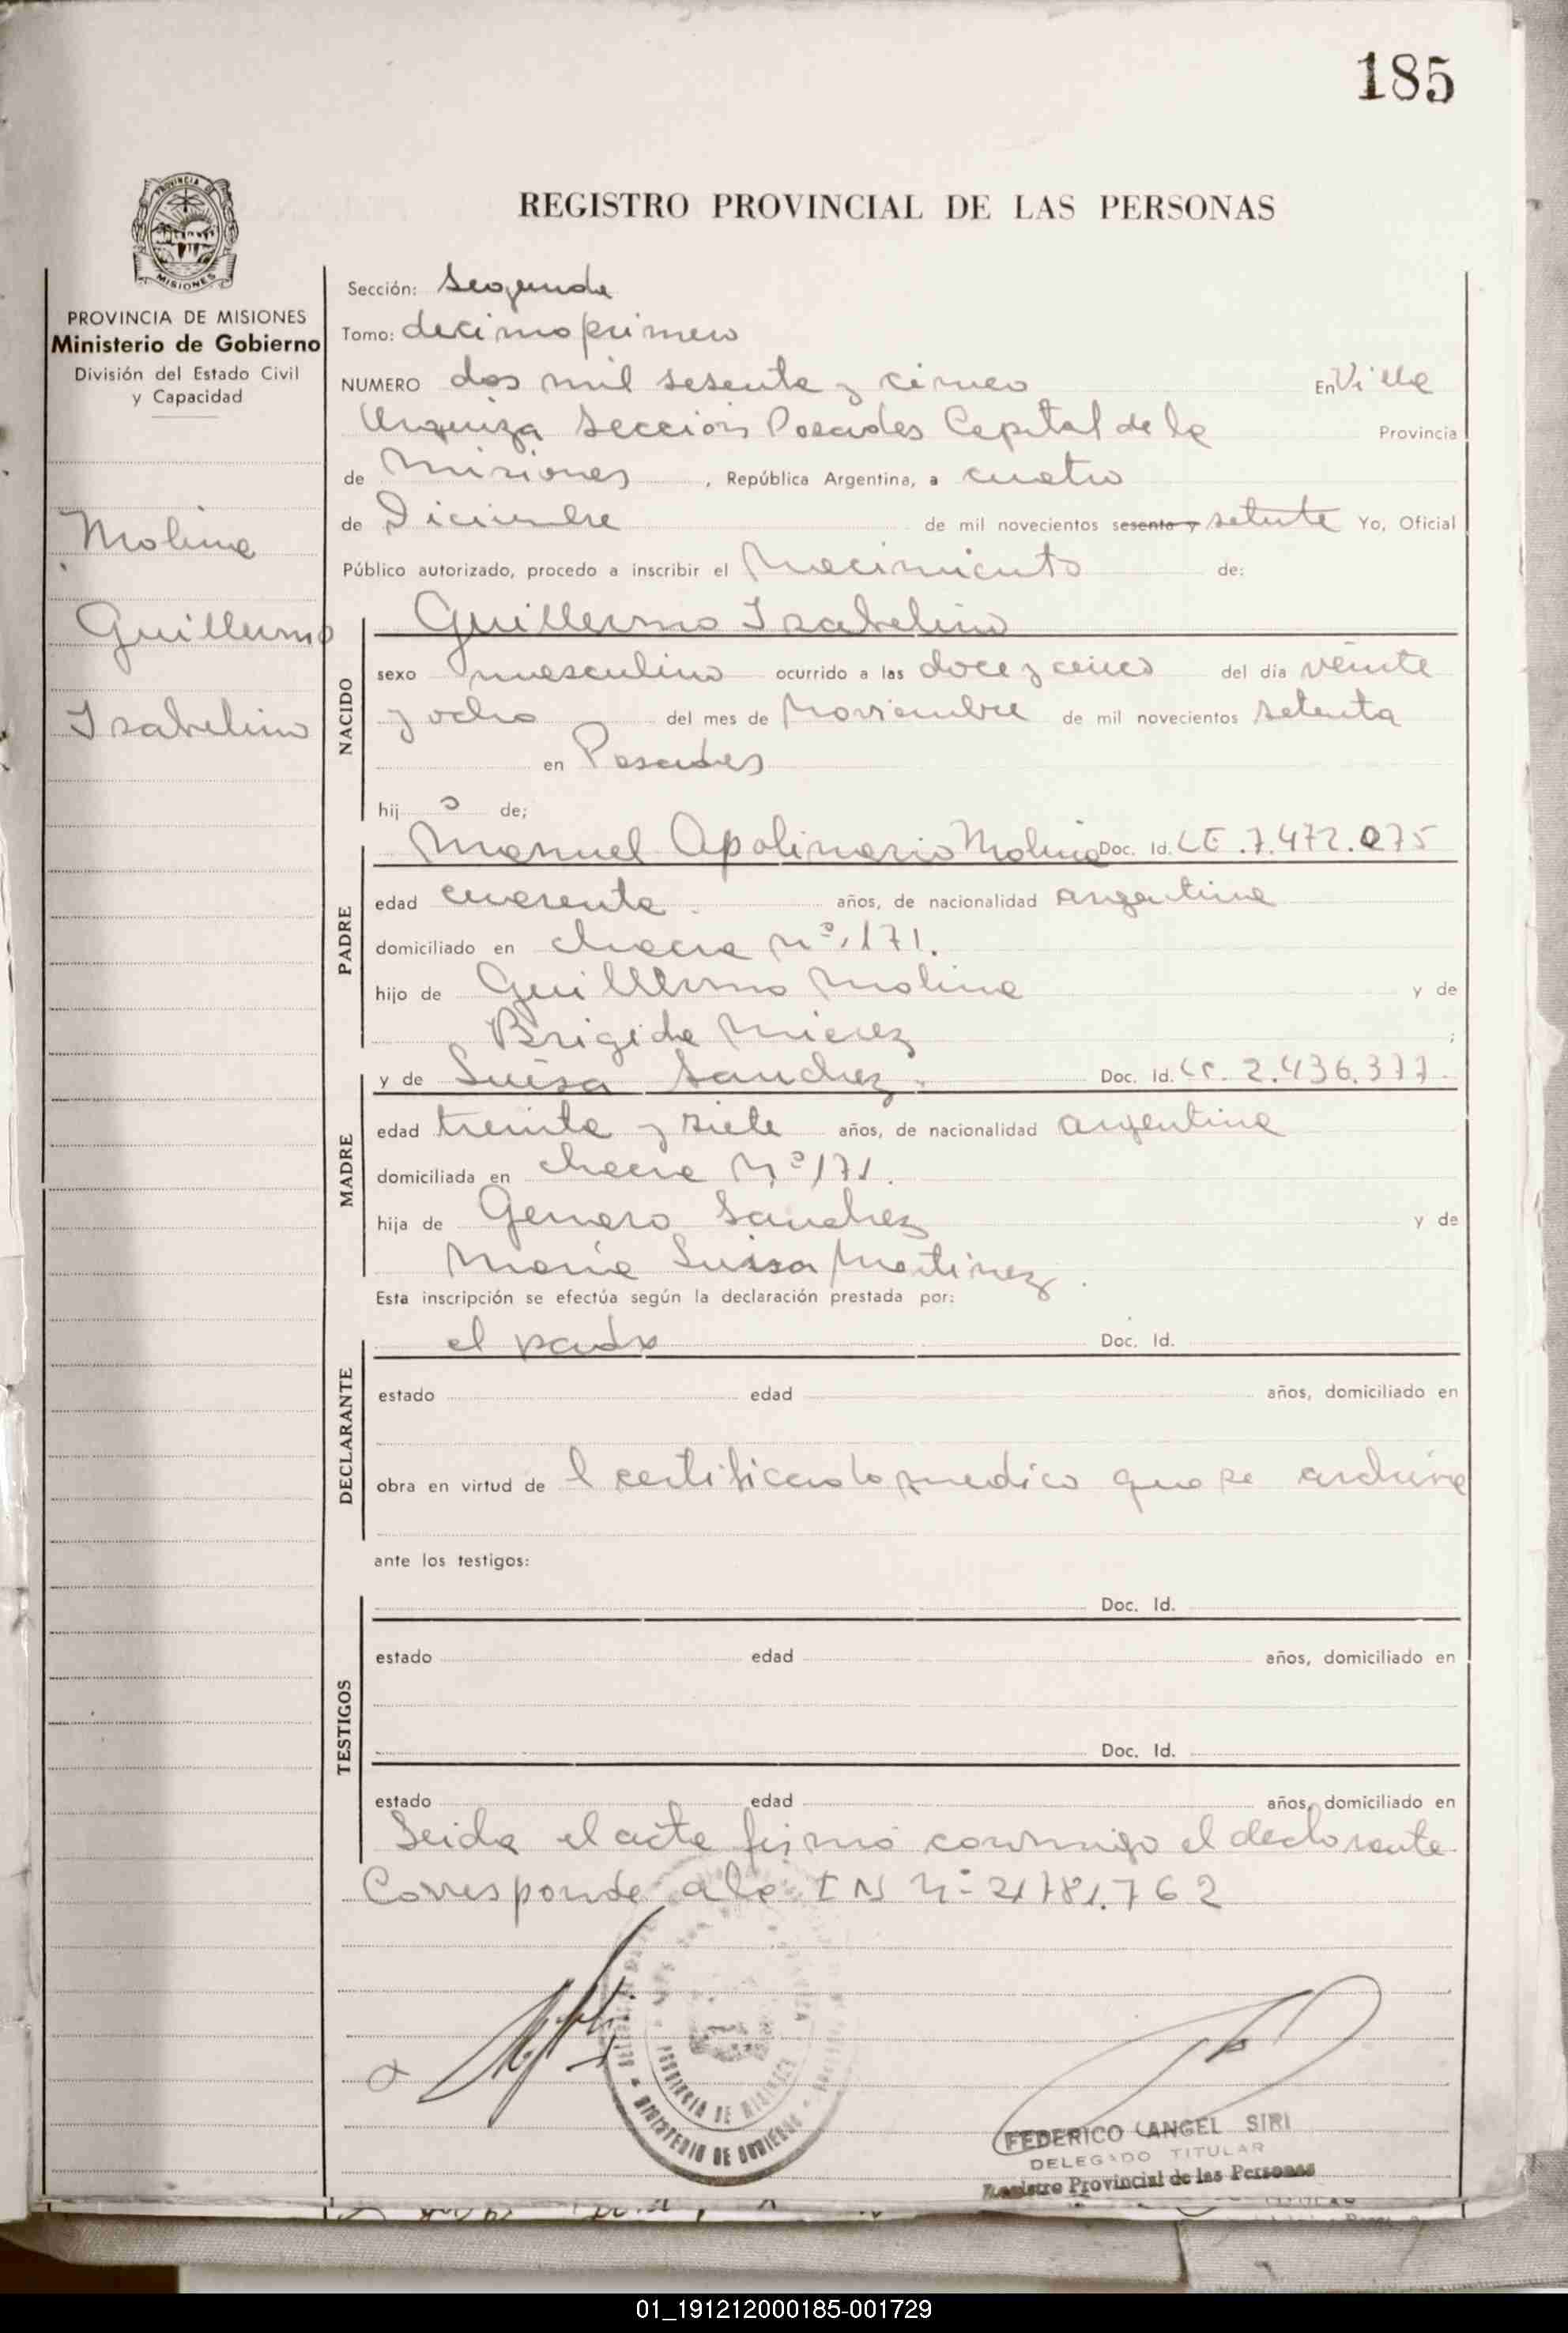 185
REGISTRO PROVINCIAL DE LAS PERSONAS
PROVINCIA DE MISIONES
Ministerio de Gobierno
División del Estado Civil
y Capacidad
Molina
Guillermo
Isabelino
Sección: Segunda
Tomo: decimo primero
NUMERO dos mil sesenta y cinco En Villa
Urquiza Sección Posadas Capital de la Provincia
de Misiones, República Argentina, a cuatro
de Diciembre de mil novecientos sesenta y setenta Yo, Oficial
Público autorizado, procedo a inscribir el Nacimiento de:
Guillermo Isabelino
NACIDO
sexo masculino ocurrido a las doce y cinco del día veinte
y ocho del mes de Noviembre de mil novecientos setenta
en Posadas
hijo de;
Manuel Apolinario Molina Doc. Id. LE.7.472.075
PADRE
edad cuarenta años, de nacionalidad argentina
domiciliado en chacra nº 171.
hijo de Guillermo Molina y de
Brigida Mierez;
y de Luisa Sanchez. Doc. Id. LC. 2.436.377.
MADRE
edad treinta y siete años, de nacionalidad argentina
domiciliada en chacra Nº 171.
hija de Genaro Sanchez y de
María Luisa Martinez.
Esta inscripción se efectúa según la declaración prestada por:
el padre Doc. Id.
DECLARANTE
estado edad años, domiciliado en
obra en virtud de l certificado medico que se archiva
ante los testigos:
Doc. Id.
TESTIGOS
estado edad años, domiciliado en
Doc. Id.
estado edad años, domiciliado en
Leida el acta firmó conmigo el declarante
Corresponde a la I N Nº 21781.762
PROVINCIA DE MISIONES
MINISTERIO DE GOBIERNO
FEDERICO ANGEL SIRI
DELEGADO TITULAR
Registro Provincial de las Personas
01_191212000185-001729